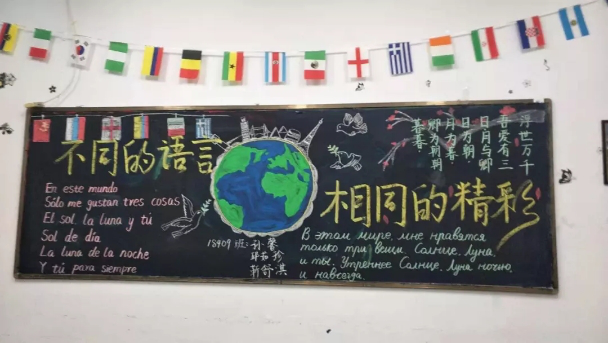 不同的语言
相同的精彩
En este mundo
Sólo me gustan tres cosas
El sol la luna y tú
Sol de día
La luna de la noche
Y tú para siempre
浮世万千
吾爱有三
日月与卿
日为朝
月为暮
卿为朝朝
暮暮
18409班:孙馨
靳舒淇
В этом мире, мне нравятся
только три вещи. Солнце, Луна,
и ты. Утреннее Солнце, Луна ночью,
и навсегда.